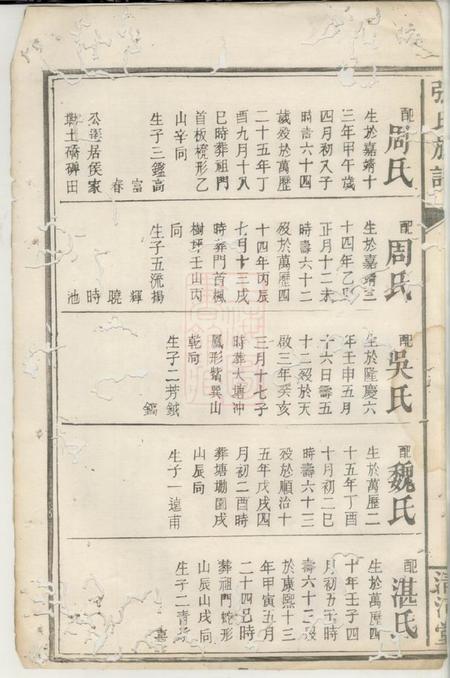 張氏族譜
清河堂
配周氏
生於嘉靖十
三年甲午歲
四月初八子
時壽六十四
歲歿於萬歷
二十五年丁
酉九月十八
巳時葬祖門
首板櫈形乙
山辛同
生子三鑑高
富
春
公遷居侯家
塅土橋碑田
配周氏
生於嘉靖三
十四年乙卯
正月十二未
時壽六十二
歿於萬歷四
十四年丙辰
七月十三戌
時葬門首楓
樹坪壬山丙
同
生子五流楊
輝
曉
時
池
配吳氏
生於隆慶六
年壬申五月
十六日壽五
十二歿於天
啟三年癸亥
三月十七子
時葬大塘冲
鳳形嘴巽山
乾同
生子二芳鉞
鐫
配魏氏
生於萬歷二
十五年丁酉
十月初二巳
時壽六十三
歿於順治十
五年戊戌四
月初二酉時
葬塘坳園戌
山辰同
生子一遠甫
配湛氏
生於萬歷四
十年壬子四
月初五午時
壽六十三歿
於康熙十三
年甲寅五月
二十四巳時
葬祖門蛇形
山辰山戌同
生子二青